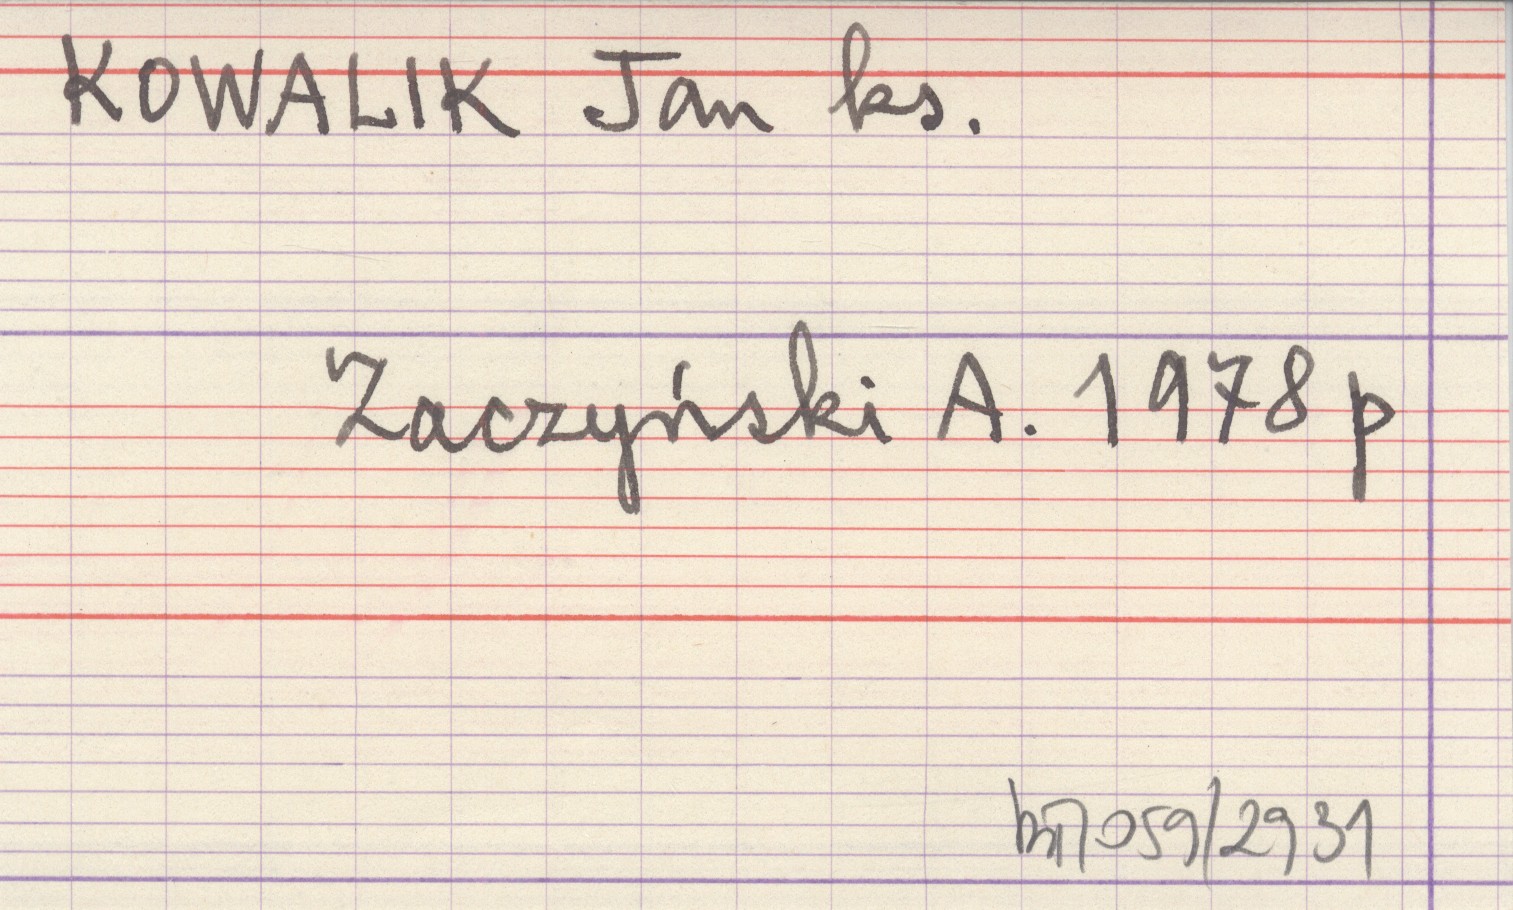 KOWALIK Jan ks.
Zaczyński A. 1978 p
059/2931